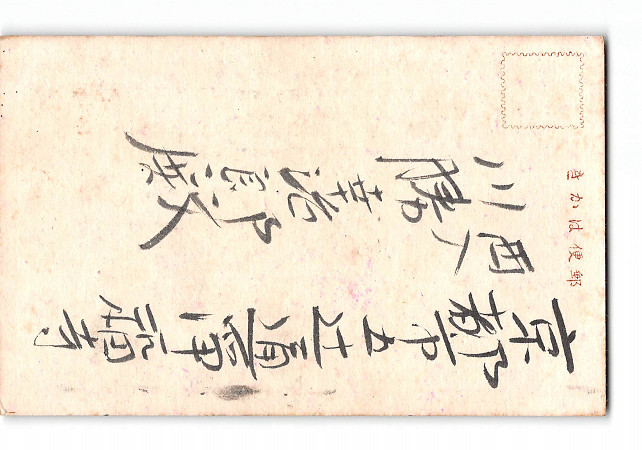 郵便はかき
京都市五辻通浄福寺
西入
川勝幸治郎殿